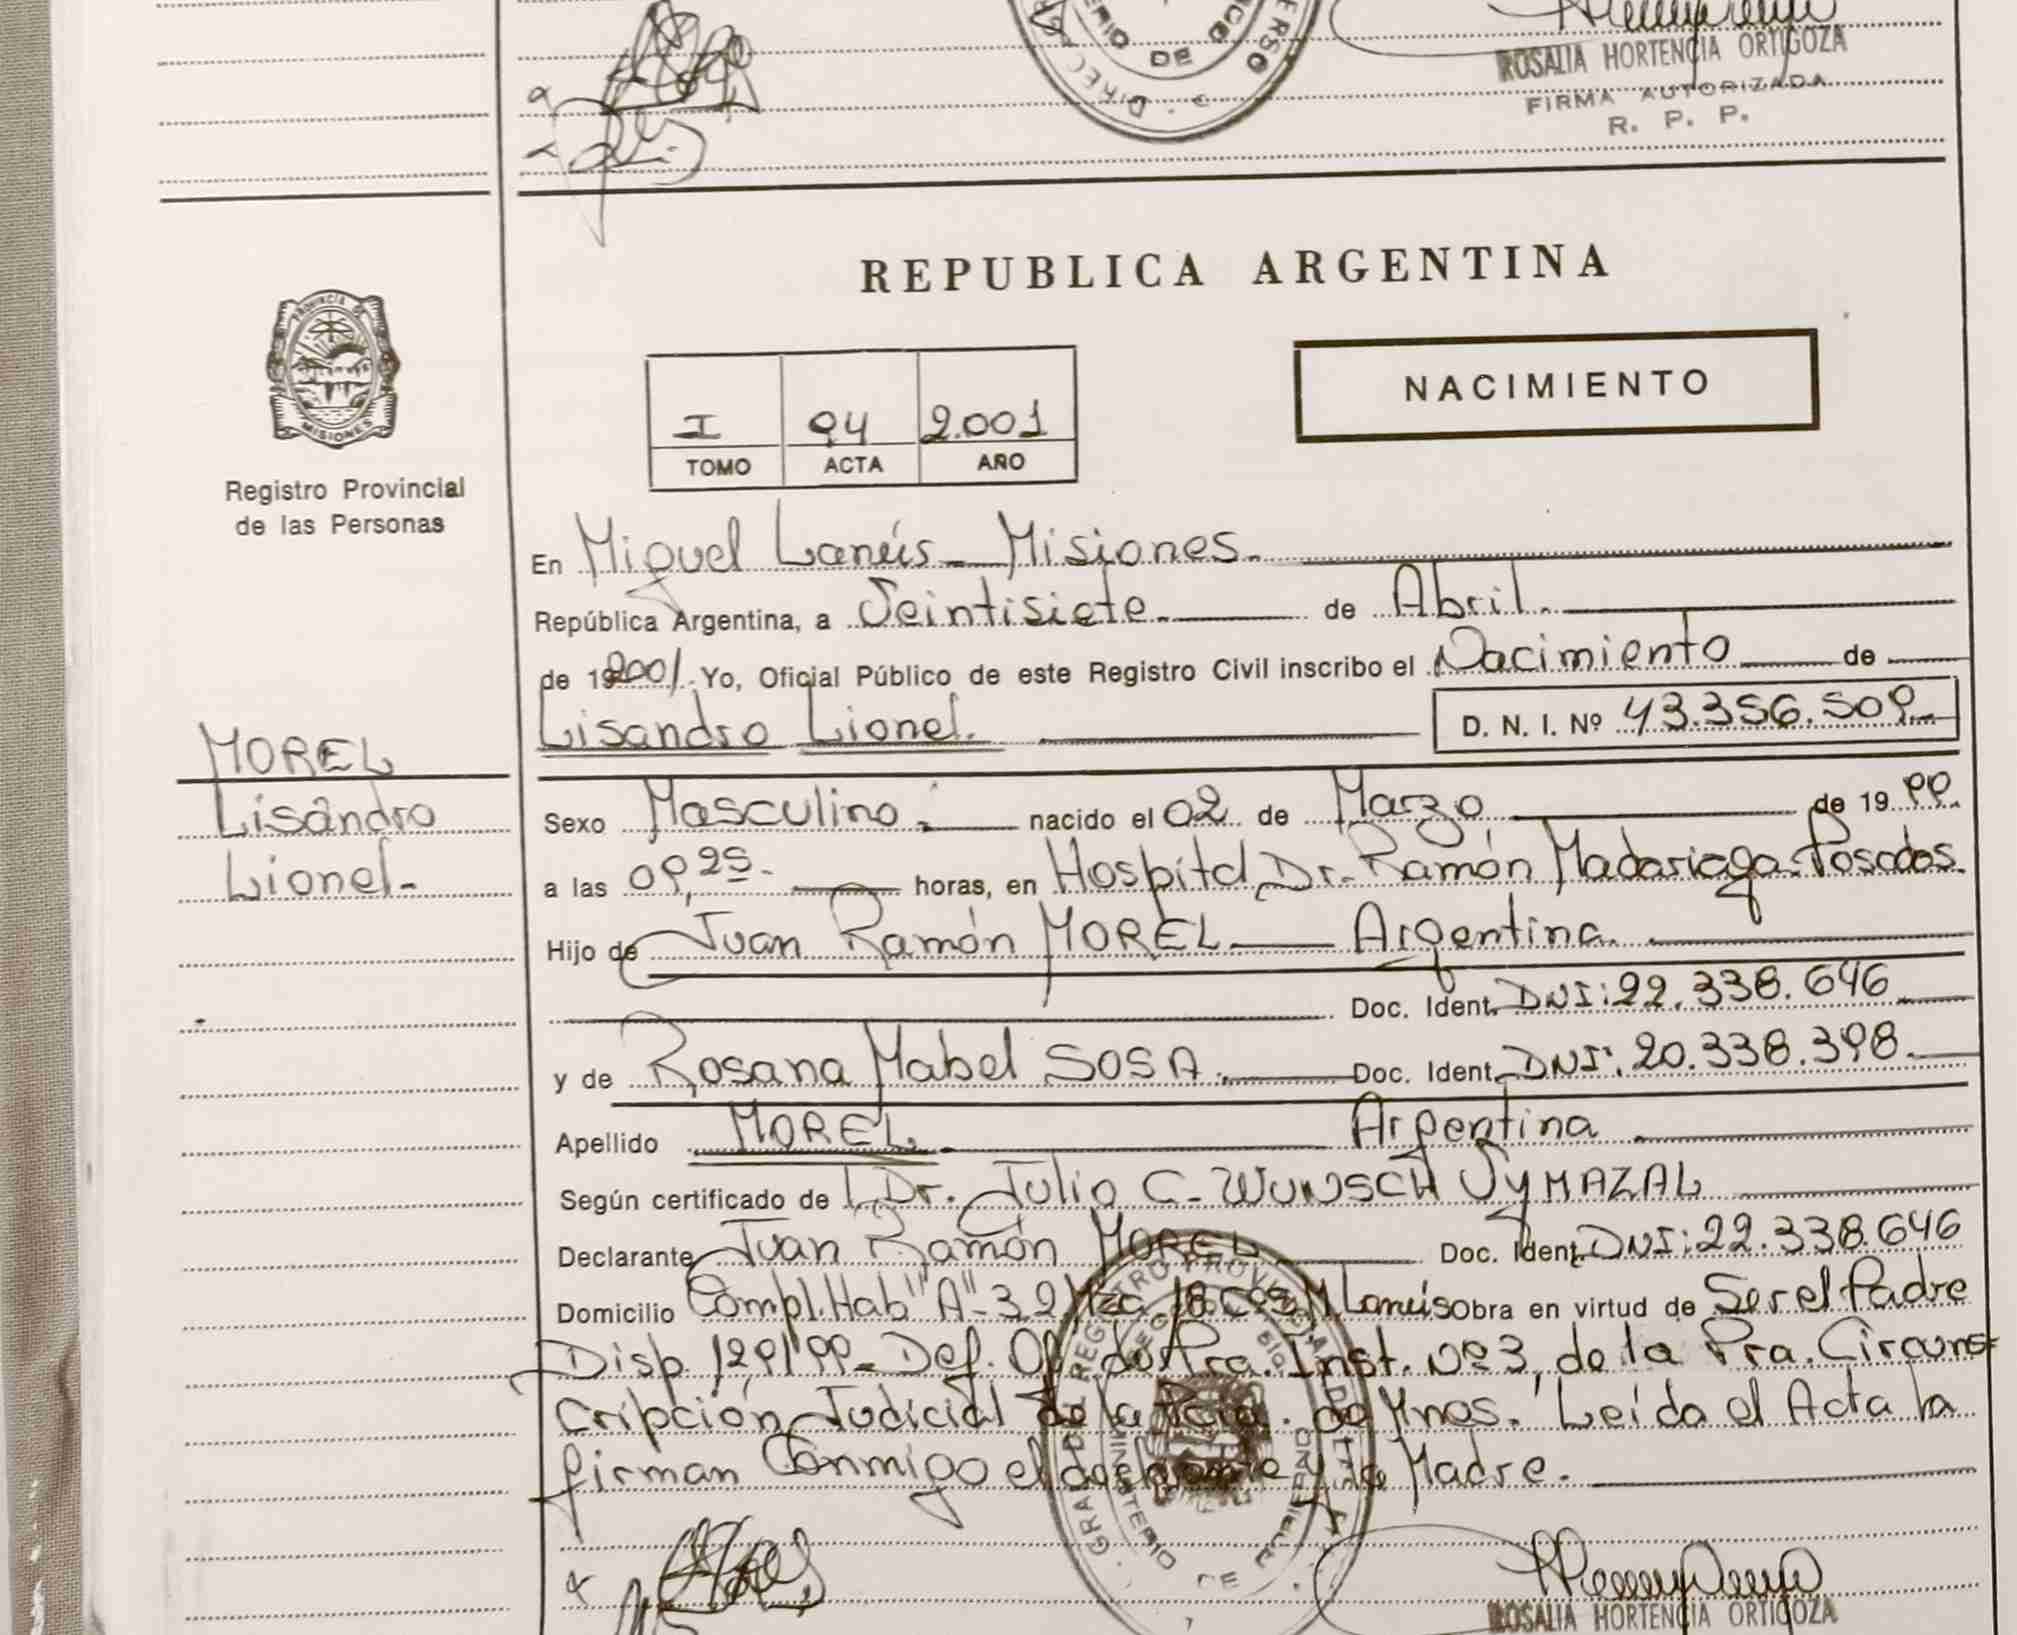 DE
ROSALIA HORTENCIA ORTIGOZA
FIRMA AUTORIZADA
R. P. P.
REPUBLICA ARGENTINA
NACIMIENTO
I 94 2.001
TOMO ACTA AÑO
PROVINCIA DE
MISIONES
Registro Provincial
de las Personas
En Miguel Lanús - Misiones.
República Argentina, a Veintisiete. de Abril.
de 19 2001 Yo, Oficial Público de este Registro Civil inscribo el Nacimiento de
Lisandro Lionel. D. N. I. Nº 43.356.509.
MOREL
Lisandro
Lionel-
Sexo Masculino. nacido el 02 de Marzo de 19 99.
a las 09,25. horas, en Hospital Dr. Ramón Madariaga-Posadas.
Hijo de Juan Ramón MOREL Argentina.
Doc. Ident. DNI: 22.338.646
y de Rosana Mabel SOSA. Doc. Ident. DNI: 20.338.398.
Apellido MOREL. Argentina
Según certificado de Dr. Julio C. WUNSCH VyMAZAL
Declarante Juan Ramón MOREL Doc. Ident. DNI: 22.338.646
Domicilio Compl. Hab "A"-32 Mza. 18 M. Lanús obra en virtud de Ser el Padre
Disp. 129/99- Def. Of. de Pra. Inst. Nº3, de la Pra. Circuns-
cripción Judicial de la Pcia. de Mnes. Leída el Acta la
firman Conmigo el declarante y la Madre.
ROSALIA HORTENCIA ORTIGOZA